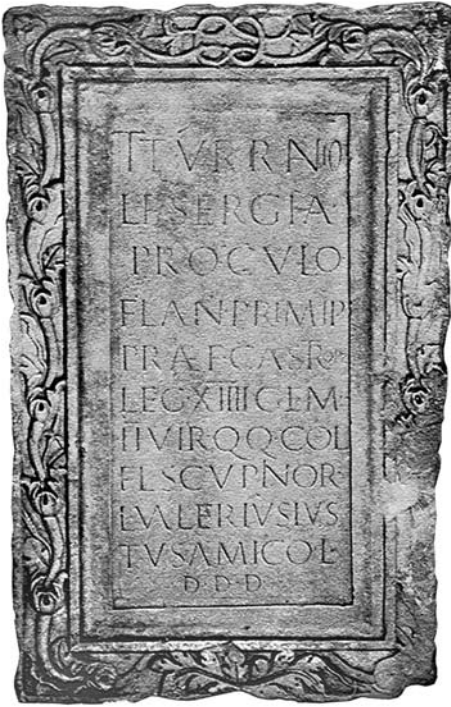 LFSERGIA
PROCVLO
FLANPRIMIP
PRAEFCASTROR
LEGXIIIIGEM
IIVIRQQCOL
FLSCVPINOR
LVALERIVSIVS
TVSAMICOL
D D D